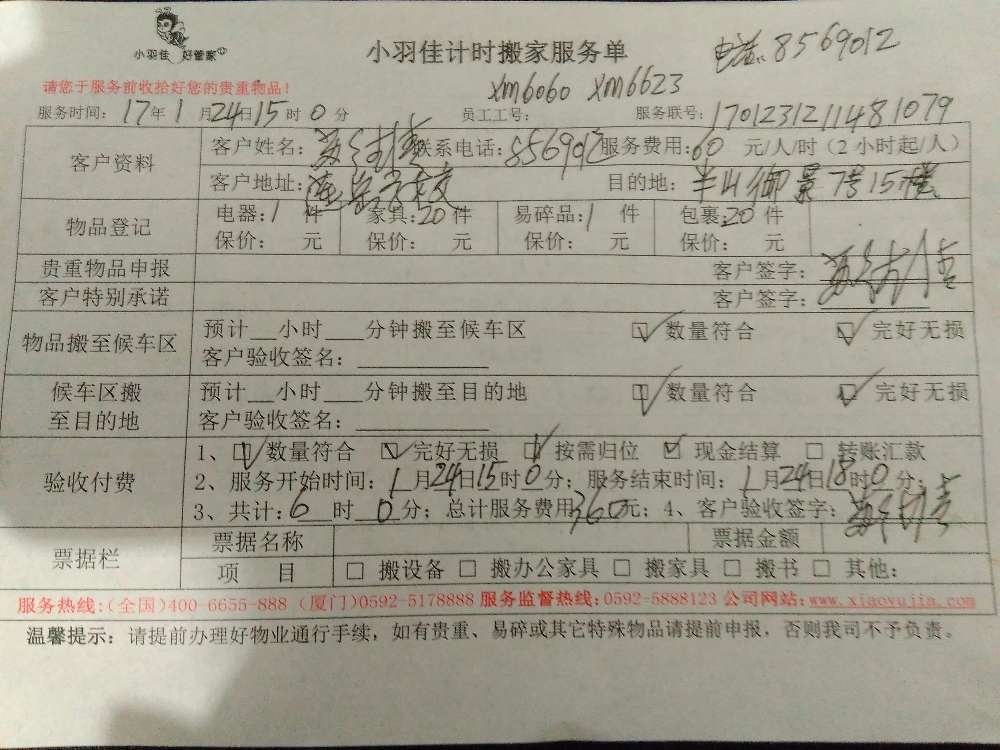 小羽佳 好管家
小羽佳计时搬家服务单
电话: 8569012
请您于服务前收拾好您的贵重物品!
xm6060 xm6623
服务时间: 17年1月24日15时0分 员工工号: 服务联号: 1701231211481079
客户资料 客户姓名: 联系电话: 8569012 服务费用: 60 元/人/时(2小时起/人)
客户地址: 学校 目的地: 半山御景7号15楼
物品登记 电器: 1 件 家具: 20 件 易碎品: 1 件 包裹: 20 件
保价: 元 保价: 元 保价: 元 保价: 元
贵重物品申报 客户签字:
客户特别承诺 客户签字:
物品搬至候车区 预计__小时___分钟搬至候车区 ☑ 数量符合 ☑ 完好无损
客户验收签名:
候车区搬至目的地 预计__小时___分钟搬至目的地 ☑ 数量符合 ☑ 完好无损
客户验收签名:
验收付费 1、☑ 数量符合 ☑ 完好无损 ☑ 按需归位 ☑ 现金结算 □ 转账汇款
2、服务开始时间: 1月24日15时0分; 服务结束时间: 1月24日18时0分;
3、共计: 6时0分; 总计服务费用360元; 4、客户验收签字:
票据栏 票据名称 票据金额
项 目 □ 搬设备 □ 搬办公家具 □ 搬家具 □ 搬书 □ 其他:
服务热线:(全国)400-6655-888 (厦门)0592-5178888 服务监督热线:0592-5888123 公司网站:www.xiaoyujia.com
温馨提示: 请提前办理好物业通行手续,如有贵重、易碎或其它特殊物品请提前申报,否则我司不予负责。